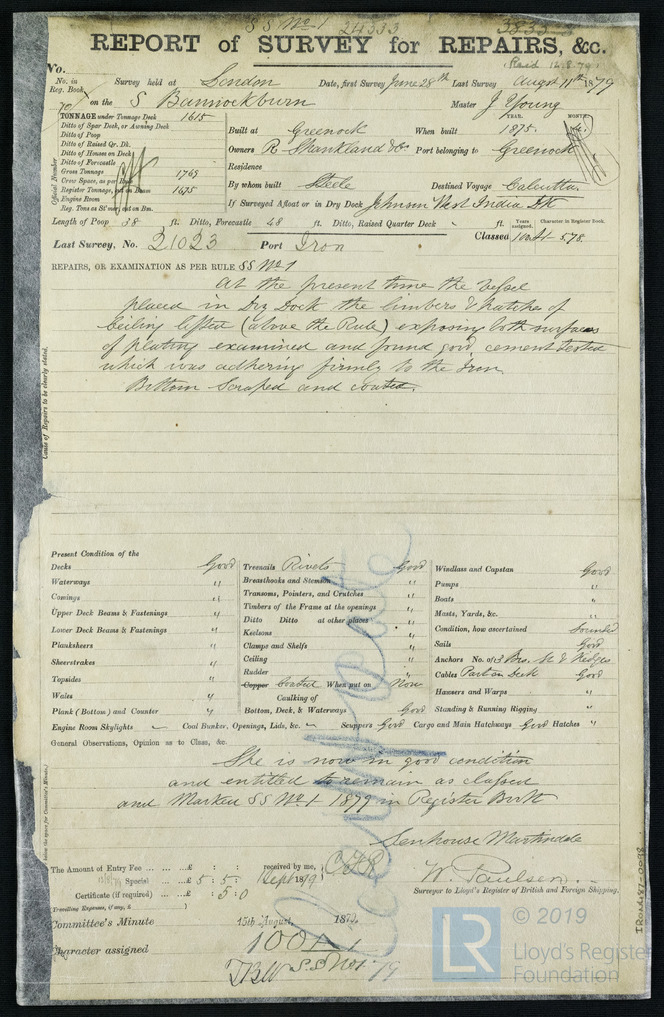 SS No 1 24333
REPORT of SURVEY for REPAIRS, &c.
No.
No. in Reg. Book. Survey held at London Date, first Survey June 28th Last Survey Augst 11th 1879
on the S Bannockburn Master J Young
TONNAGE under Tonnage Deck 1615
Ditto of Spar Deck, or Awning Deck
Ditto of Poop
Ditto of Raised Qr. Dk.
Ditto of Houses on Deck
Ditto of Forecastle
Gross Tonnage 1769
Crew Space, as per Rule
Register Tonnage, cut on Beam 1675
Engine Room
Reg. Tons as St'mer, cut on Bm.
Official Number
Built at Greenock When built YEAR. 1875. MONTH
Owners R Shankland & Co Port belonging to Greenock
Residence
By whom built Steele Destined Voyage Calcutta
If Surveyed Afloat or in Dry Dock Johnson West India Dk
Length of Poop 38 ft. Ditto, Forecastle 48 ft. Ditto, Raised Quarter Deck - ft.
Years assigned. Character in Register Book.
Last Survey, No. 21023 Port Iron Classed 100A1-5.78.
REPAIRS, OR EXAMINATION AS PER RULE SS No 1
At the present time the Vessel
placed in Dry Dock the limbers & hatches of
Ceiling lifted (above the Rule) exposing both surfaces
of plating examined and found good cement tested
which was adhering firmly to the Iron
Bottom Scraped and coated.
Cause of Repairs to be clearly stated.
Present Condition of the
Decks Good
Waterways "
Comings "
Upper Deck Beams & Fastenings "
Lower Deck Beams & Fastenings "
Planksheers "
Sheerstrakes "
Topsides "
Wales "
Plank (Bottom) and Counter "
Engine Room Skylights
Treenails Rivets Good
Breasthooks and Stemson "
Transoms, Pointers, and Crutches "
Timbers of the Frame at the openings "
Ditto Ditto at other places "
Keelsons "
Clamps and Shelfs "
Ceiling "
Rudder "
Copper Coated When put on Now
Caulking of
Bottom, Deck, & Waterways Good
Coal Bunker, Openings, Lids, &c.
Windlass and Capstan Good
Pumps "
Boats "
Masts, Yards, &c. "
Condition, how ascertained Sounded
Sails Good
Anchors No. of 3 Brs. St & Kedges
Cables Part on Deck Good
Hawsers and Warps "
Standing & Running Rigging "
Scuppers Good Cargo and Main Hatchways Good Hatches "
General Observations, Opinion as to Class, &c.
She is now in good condition
and entitled to remain as classed
and Marked SS No 1 1879 in Register Book
Senhouse Martindale
The Amount of Entry Fee ... £ : : received by me,
Special ... £ 5 : 5 : Sept 1879
Certificate (if required) ... £ : 5 : 0
Travelling Expenses, if any, £
W. Paulsen
Surveyor to Lloyd's Register of British and Foreign Shipping.
Committee's Minute 15th August, 1879.
Character assigned 100A1
SS No 1. 79
IRON487-0098
LR
© 2019
Lloyd's Register
Foundation